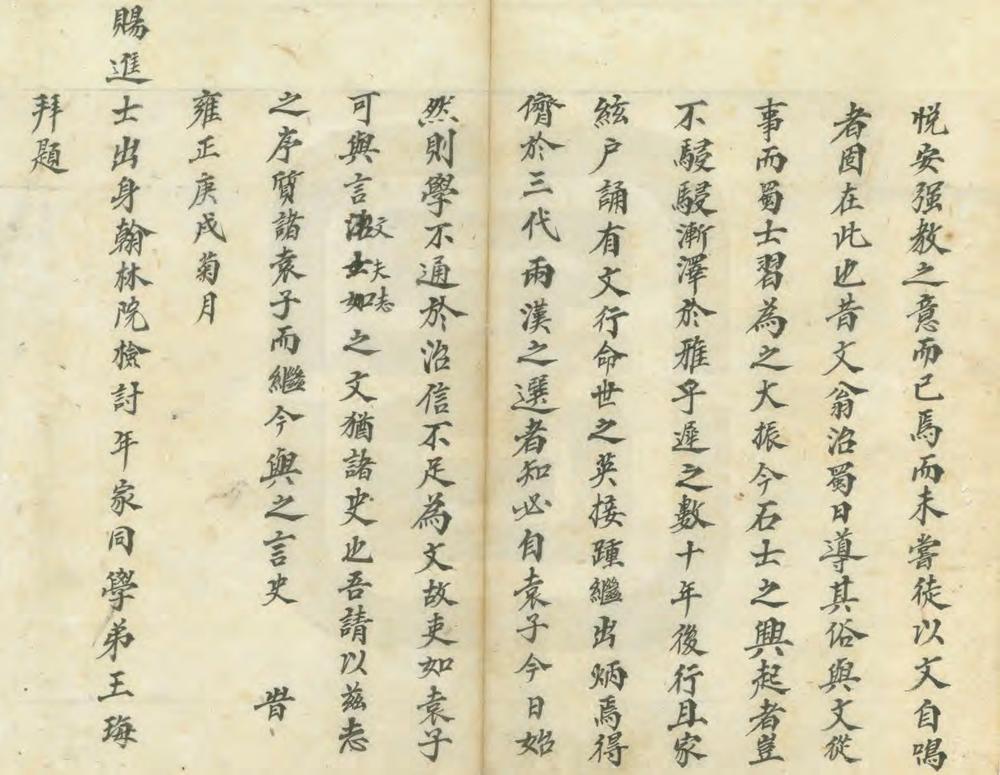 悅安强教之意而已焉而未嘗徒以文自鳴
者固在此也昔文翁治蜀日導其俗與文從
事而蜀士習為之大振今石士之興起者豈
不駸駸漸澤於雅乎遲之數十年後行且家
絃户誦有文行命世之英接踵繼出炳焉得
儕於三代兩漢之選者知必自袁子今日始
然則學不通於治信不足為文故吏如袁子
可與言文夫志之文猶諸史也吾請以兹志
之序質諸袁子而繼今與之言史 昔
雍正庚戌菊月
賜進士出身翰林院檢討年家同學弟王珻
拜題